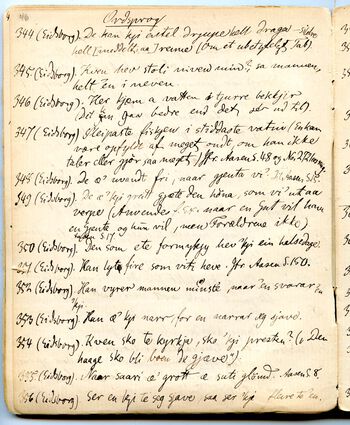 46
Ordsprog
344 (Eidsborg). De kan kji asteil drjupe hell draga
hell (meddelt: aa) renne (Om et ubetydeligt Tab).
345 (Eidsborg). Kven hev stoli niven mind? sa mannen,
helt 'en i neven
346 (Eidsborg). Her kjem a vatten i turre bekkjir
347 (Eidsborg). Gleiparte fisken i stiddaste vatni (En kan
være opfyldt af meget ondt, om han ikke
taler eller gjør saa noget) Jfr Aasen S. 48 og No
348 (Eidsborg). De æ' uvendt fri, naar gjenta vi'
349 (Eidsborg). De æ' kji grôt gjæte den höna, som vi' utaa
verpe (Anvendes naar en Gut vil have
en Gjente og hun vil, men Forældrene ikke)
350 (Eidsborg). Den som ete formykjy hev kji ein halsedyge.
351 (Eidsborg). Han lyte fire som viti heve. Jfr Aasen S. 150.
352 (Eidsborg). Han vyrer mannen minste, naar 'en svarar
353 (Eidsborg). Han æ' kji narr, for en narrar seg sjave.
354 (Eidsborg). Kven sko te kyrkje, sko 'kji presten? (: Den
haage sko bli bom de gjæve").
355 (Eidsborg). Naar saari æ' grott æ suti glömd. Aasen S. 8.
356 (Eidsborg). Ser en kji te seg sjave saa ser kji fleire te en.